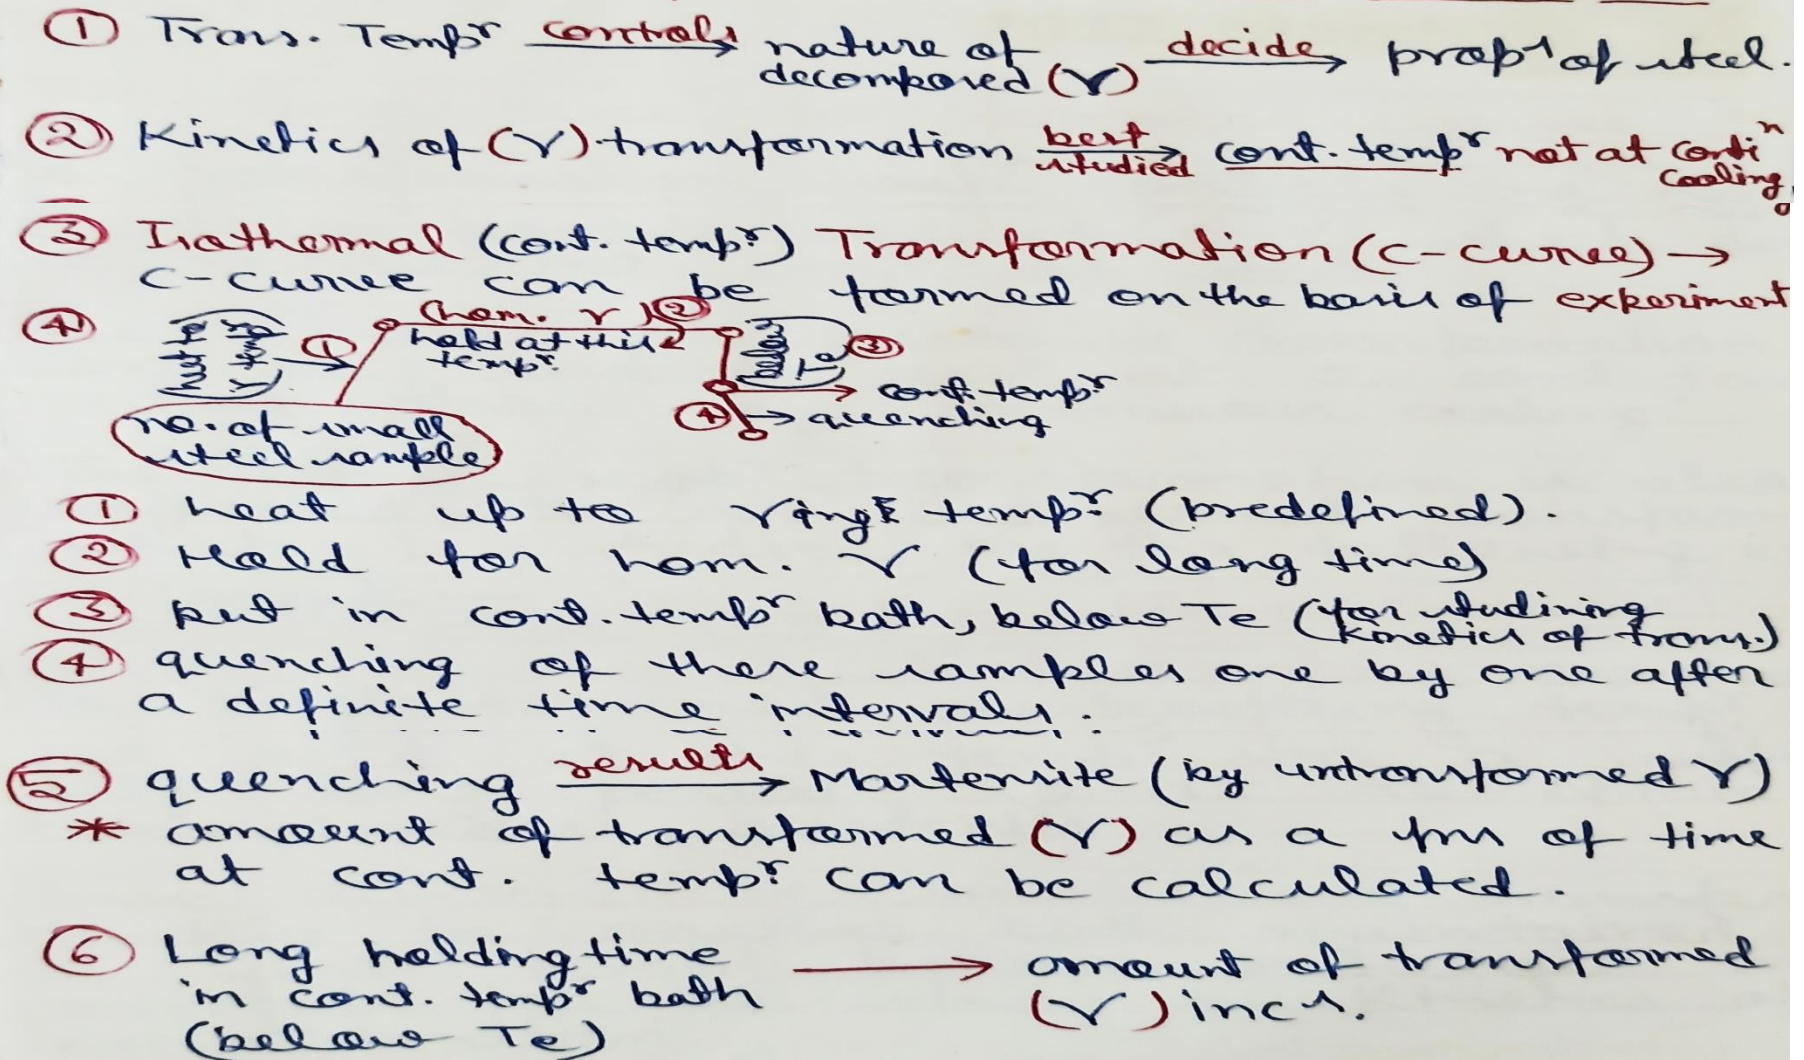 ① Trans. Tempʳ controls → nature of decomposed (γ) decide → propˢ of steel.
② Kinetics of (γ) transformation best studied → cont. tempʳ not at contiⁿ cooling.
③ Isothermal (cont. tempʳ) Transformation (C-curve) →
C-curve can be formed on the basis of experiment
④ ① (hom. γ) ② hold at this tempʳ ③
cont. tempʳ
④ → quenching
no. of small
steel sample
① heat up to γ ing tempʳ (predefined).
② Hold for hom. γ (for long time)
③ put in cont. tempʳ bath, below Te (for studining kinetics of trans.)
④ quenching of these samples one by one after
a definite time intervals.
⑤ quenching results → Martensite (by untransformed γ)
* amount of transformed (γ) as a fns of time
at cont. tempʳ can be calculated.
⑥ Long holding time → amount of transformed
in cont. tempʳ bath (γ) incs.
(below Te)